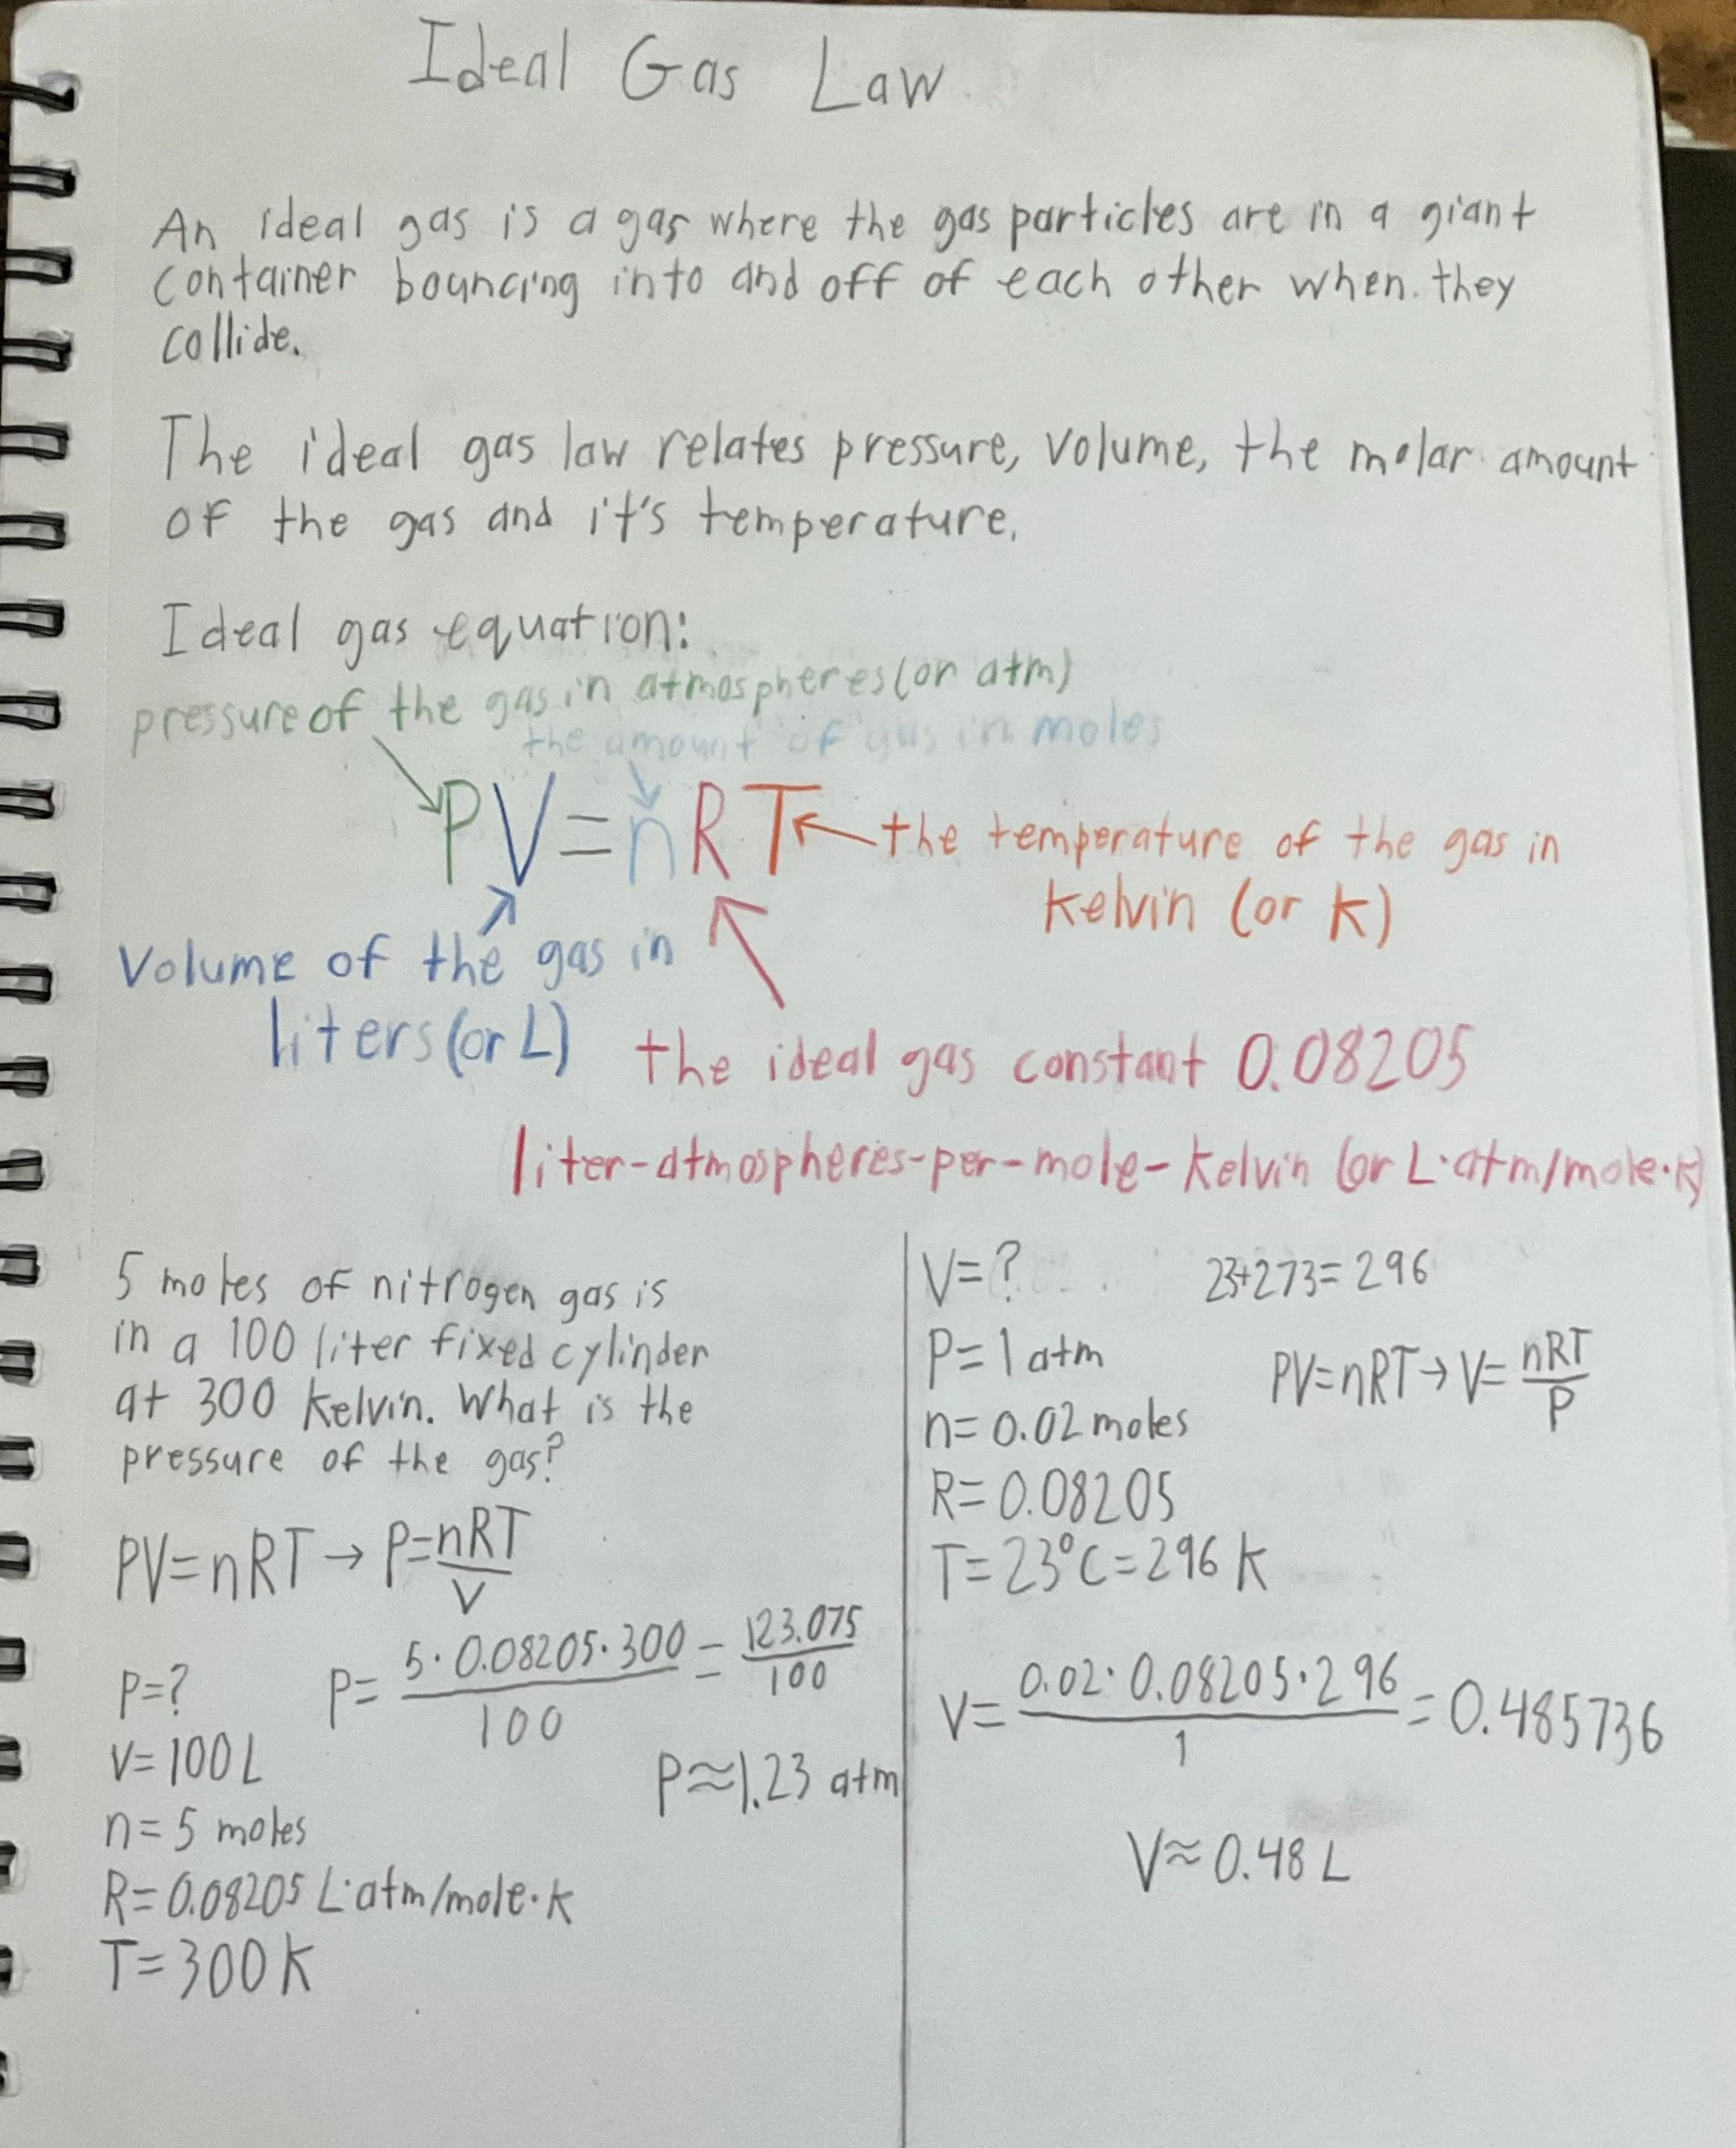 Ideal Gas Law
An ideal gas is a gas where the gas particles are in a giant
container bouncing into and off of each other when they
collide.
The ideal gas law relates pressure, volume, the molar amount
of the gas and it's temperature.
Ideal gas equation:
pressure of the gas in atmospheres (or atm)
the amount of gas in moles
PV=nRT
the temperature of the gas in
kelvin (or K)
Volume of the gas in
liters (or L)
the ideal gas constant 0.08205
liter-atmospheres-per-mole-kelvin (or L·atm/mole·K)
5 moles of nitrogen gas is
in a 100 liter fixed cylinder
at 300 kelvin. What is the
pressure of the gas?
PV=nRT→P=nRT/V
P=?
V=100L
n=5 moles
R=0.08205 L·atm/mole·K
T=300K
P=5·0.08205·300/100=123.075/100
P≈1.23 atm
V=?
P=1 atm
n=0.02 moles
R=0.08205
T=23°C=296 K
23+273=296
PV=nRT→V=nRT/P
V=0.02·0.08205·296/1=0.485736
V≈0.48 L